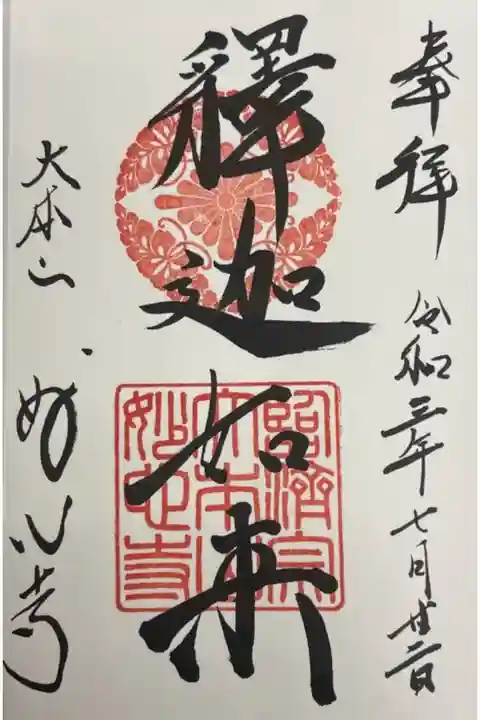 奉拝
令和三年七月廿二日
釋迦如来
臨済宗
大本山
妙心寺
大本山
妙心寺